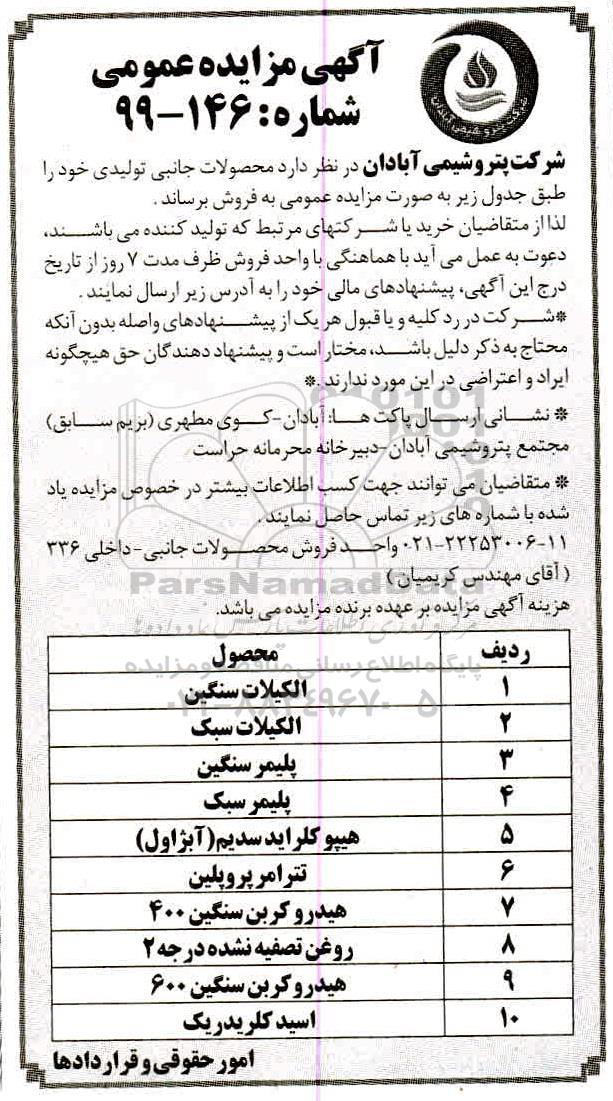 آگهی مزایده عمومی
شماره: ۱۴۶-۹۹
شرکت پتروشیمی آبادان
شرکت پتروشیمی آبادان در نظر دارد محصولات جانبی تولیدی خود را
طبق جدول زیر به صورت مزایده عمومی به فروش برساند .
لذا از متقاضیان خرید یا شرکتهای مرتبط که تولید کننده می باشند،
دعوت به عمل می آید با هماهنگی با واحد فروش ظرف مدت ۷ روز از تاریخ
درج این آگهی، پیشنهادهای مالی خود را به آدرس زیر ارسال نمایند .
*شرکت در رد کلیه و یا قبول هر یک از پیشنهادهای واصله بدون آنکه
محتاج به ذکر دلیل باشد، مختار است و پیشنهاد دهندگان حق هیچگونه
ایراد و اعتراضی در این مورد ندارند.*
* نشانی ارسال پاکت ها: آبادان-کوی مطهری (بزیم سابق)
مجتمع پتروشیمی آبادان-دبیرخانه محرمانه حراست
* متقاضیان می توانند جهت کسب اطلاعات بیشتر در خصوص مزایده یاد
شده با شماره های زیر تماس حاصل نمایند .
۰۲۱-۲۲۲۵۳۰۰۶-۱۱ واحد فروش محصولات جانبی-داخلی ۳۳۶
( آقای مهندس کریمیان )
هزینه آگهی مزایده بر عهده برنده مزایده می باشد.
ParsNamadData
پایگاه اطلاع رسانی مناقصه و مزایده
۰۲۱-۸۸۳۴۹۶۷۰-۵
ردیف محصول
۱ الکیلات سنگین
۲ الکیلات سبک
۳ پلیمر سنگین
۴ پلیمر سبک
۵ هیپو کلراید سدیم(آبژاول)
۶ تترامر پروپلین
۷ هیدروکربن سنگین ۴۰۰
۸ روغن تصفیه نشده درجه ۲
۹ هیدروکربن سنگین ۶۰۰
۱۰ اسید کلریدریک
امور حقوقی و قراردادها